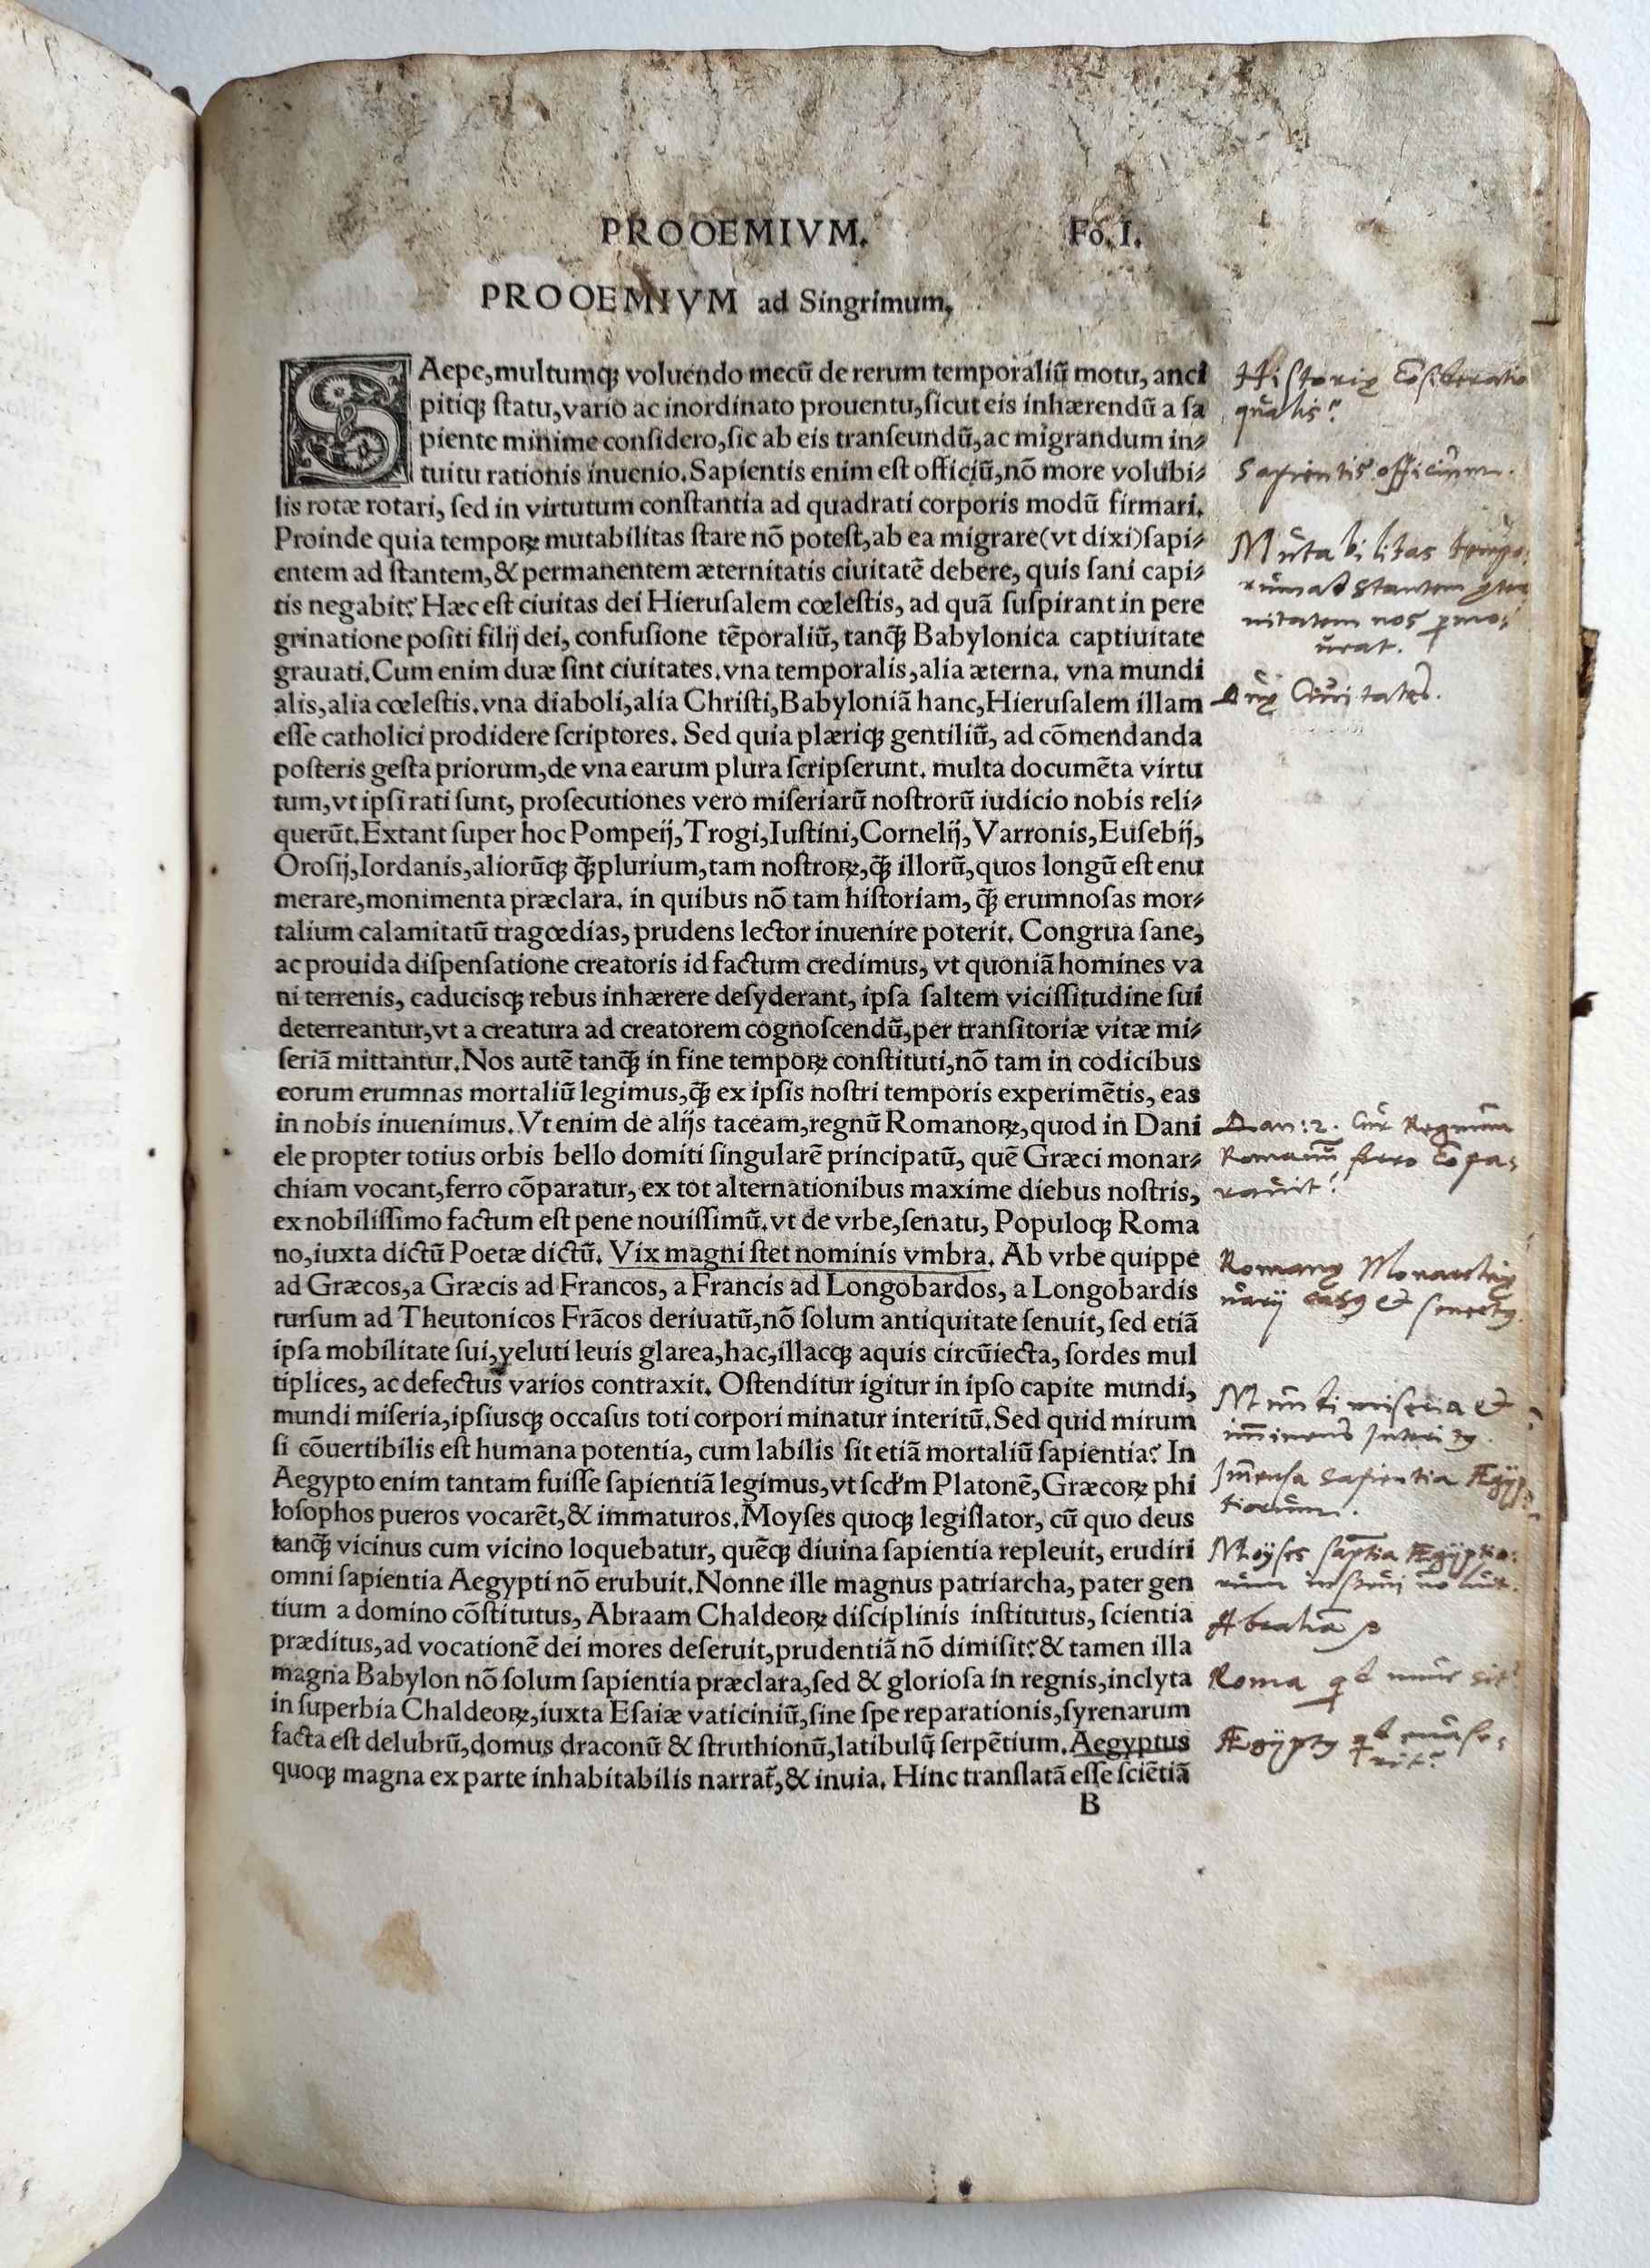 PROOEMIVM. Fo. I.
PROOEMIVM ad Singrimum,
SAepe, multumqꝫ voluendo mecū de rerum temporaliū motu, anci
pitiqꝫ ſtatu, vario ac inordinato prouentu, ſicut eis inhærendū a ſa
piente minime conſidero, ſic ab eis tranſeundū, ac migrandum in⸗
tuitu rationis inuenio. Sapientis enim eſt officiū, nō more volubi⸗
lis rotæ rotari, ſed in virtutum conſtantia ad quadrati corporis modū firmari.
Proinde quia temporꝝ mutabilitas ſtare nō poteſt, ab ea migrare (vt dixi) ſapi⸗
entem ad ſtantem, & permanentem æternitatis ciuitatē debere, quis ſani capi⸗
tis negabit? Hæc eſt ciuitas dei Hieruſalem cœleſtis, ad quā ſuſpirant in pere
grinatione poſiti filij dei, confuſione tēporaliū, tanqꝫ̄ Babylonica captiuitate
grauati. Cum enim duæ ſint ciuitates. vna temporalis, alia æterna. vna mundi
alis, alia cœleſtis. vna diaboli, alia Chriſti, Babyloniā hanc, Hieruſalem illam
eſſe catholici prodidere ſcriptores. Sed quia plæriqꝫ gentiliū, ad cōmendanda
poſteris geſta priorum, de vna earum plura ſcripſerunt. multa documēta virtu
tum, vt ipſi rati ſunt, proſecutiones vero miſeriarū noſtrorū iudicio nobis reli⸗
querūt. Extant ſuper hoc Pompeij, Trogi, Iuſtini, Cornelij, Varronis, Euſebij,
Oroſij, Iordanis, aliorūqꝫ qꝫ̄ plurium, tam noſtrorꝝ, qꝫ̄ illorū, quos longū eſt enu
merare, monimenta præclara. in quibus nō tam hiſtoriam, qꝫ̄ erumnoſas mor⸗
talium calamitatū tragœdias, prudens lector inuenire poterit. Congrua ſane,
ac prouida diſpenſatione creatoris id factum credimus, vt quoniā homines va
ni terrenis, caduciſqꝫ rebus inhærere deſyderant, ipſa ſaltem viciſſitudine ſui
deterreantur, vt a creatura ad creatorem cognoſcendū, per tranſitoriæ vitæ mi⸗
ſeriā mittantur. Nos autē tanqꝫ̄ in fine temporꝝ conſtituti, nō tam in codicibus
eorum erumnas mortaliū legimus, qꝫ̄ ex ipſis noſtri temporis experimētis, eas
in nobis inuenimus. Vt enim de alijs taceam, regnū Romanorꝝ, quod in Dani
ele propter totius orbis bello domiti ſingularē principatū, quē Græci monar⸗
chiam vocant, ferro cōparatur, ex tot alternationibus maxime diebus noſtris,
ex nobiliſſimo factum eſt pene nouiſſimū. vt de vrbe, ſenatu, Populoqꝫ Roma
no, iuxta dictū Poetæ dictū. Vix magni ſtet nominis vmbra. Ab vrbe quippe
ad Græcos, a Græcis ad Francos, a Francis ad Longobardos, a Longobardis
rurſum ad Theutonicos Frācos deriuatū, nō ſolum antiquitate ſenuit, ſed etiā
ipſa mobilitate ſui, veluti leuis glarea, hac, illacqꝫ aquis circūiecta, ſordes mul
tiplices, ac defectus varios contraxit. Oſtenditur igitur in ipſo capite mundi,
mundi miſeria, ipſiusqꝫ occaſus toti corpori minatur interitū. Sed quid mirum
ſi cōuertibilis eſt humana potentia, cum labilis ſit etiā mortaliū ſapientia? In
Aegypto enim tantam fuiſſe ſapientiā legimus, vt ſcd'm Platonē, Græcorꝝ phi
loſophos pueros vocarēt, & immaturos. Moyſes quoqꝫ legiſlator, cū quo deus
tanqꝫ̄ vicinus cum vicino loquebatur, quēqꝫ diuina ſapientia repleuit, erudiri
omni ſapientia Aegypti nō erubuit. Nonne ille magnus patriarcha, pater gen
tium a domino cōſtitutus, Abraam Chaldeorꝝ diſciplinis inſtitutus, ſcientia
præditus, ad vocationē dei mores deſeruit, prudentiā nō dimiſit? & tamen illa
magna Babylon nō ſolum ſapientia præclara, ſed & glorioſa in regnis, inclyta
in ſuperbia Chaldeorꝝ, iuxta Eſaiæ vaticiniū, ſine ſpe reparationis, ſyrenarum
facta eſt delubrū, domus draconū & ſtruthionū, latibulū ſerpētium. Aegyptus
quoqꝫ magna ex parte inhabitabilis narrat̄, & inuia. Hinc tranſlatā eſſe ſciētiā
B
Hiſtoriæ
qualis?
Sapientis officium.
Mutabilitas tempo:
rum ad stantem
nitatem nos
Duæ Ciuitates.
Dan: 2. Cur Regnum
Romanū ferro Cōpa⸗
Romanæ Monarchiæ
uarij &
Mundi miseria &
Im̄ensa sapientia Ægyp⸗
tiorum.
Moÿses Ægyptio:
rum
Abrahā
Roma nunc sit